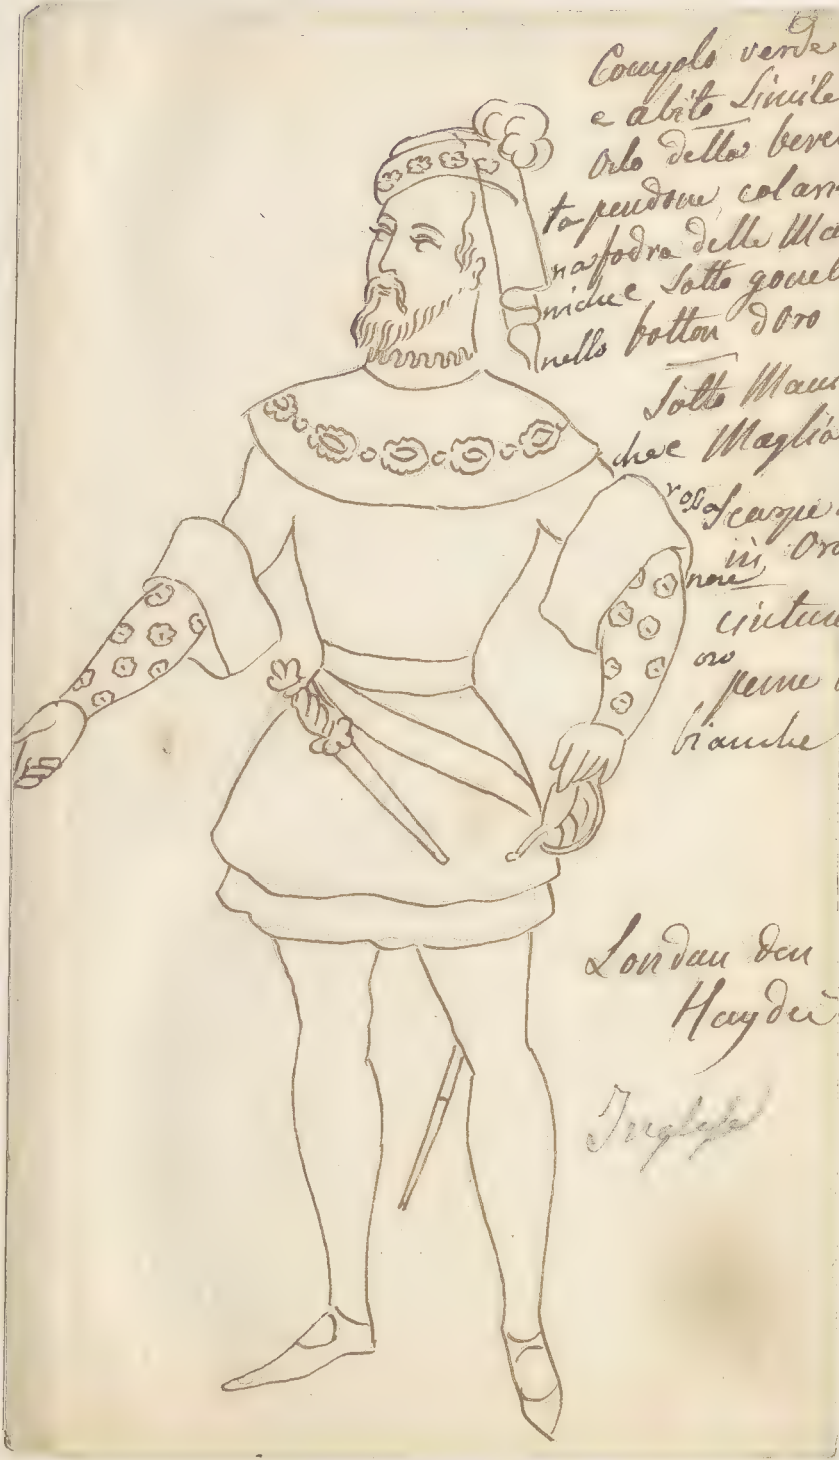 verde
e abito Simile
Orlo della bere
ta pendone colari
na fodra delle Ma
niche e Sotto gonel
nello botton d'Oro
Sotto Mani
che e Maglia
roso Scarpe
in Oro
nere
cintura
oro
penne
bianche
Londan den
Hayden
Inglese